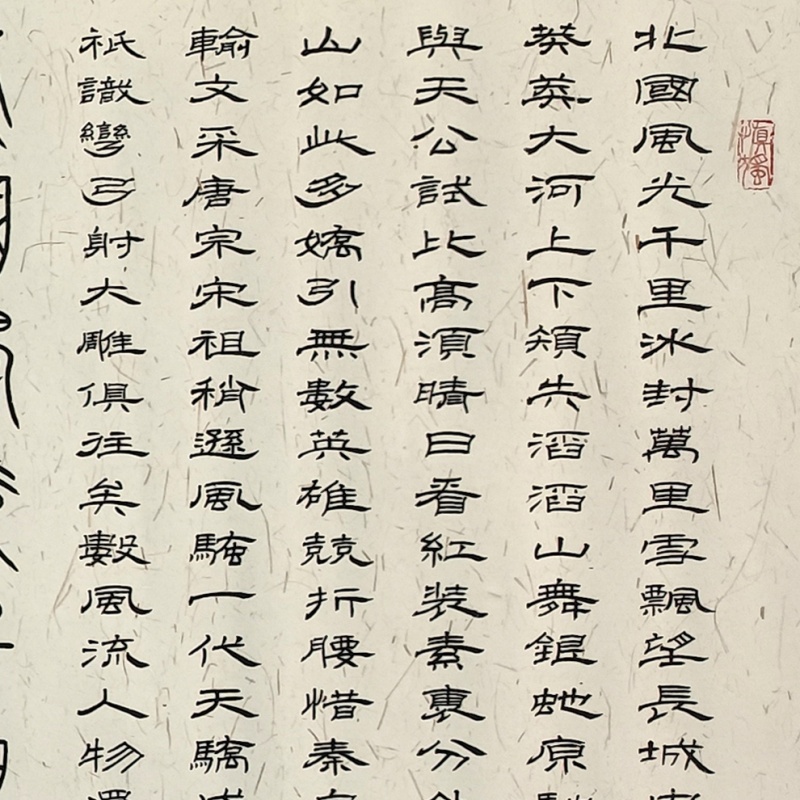 慎獨
北國風光千里冰封萬里雪飄望長城
莽莽大河上下頓失滔滔山舞銀蛇原
與天公試比高須晴日看紅裝素裹分
山如此多嬌引無數英雄競折腰惜秦
輸文采唐宗宋祖稍遜風騷一代天驕
祇識彎弓射大雕俱往矣數風流人物